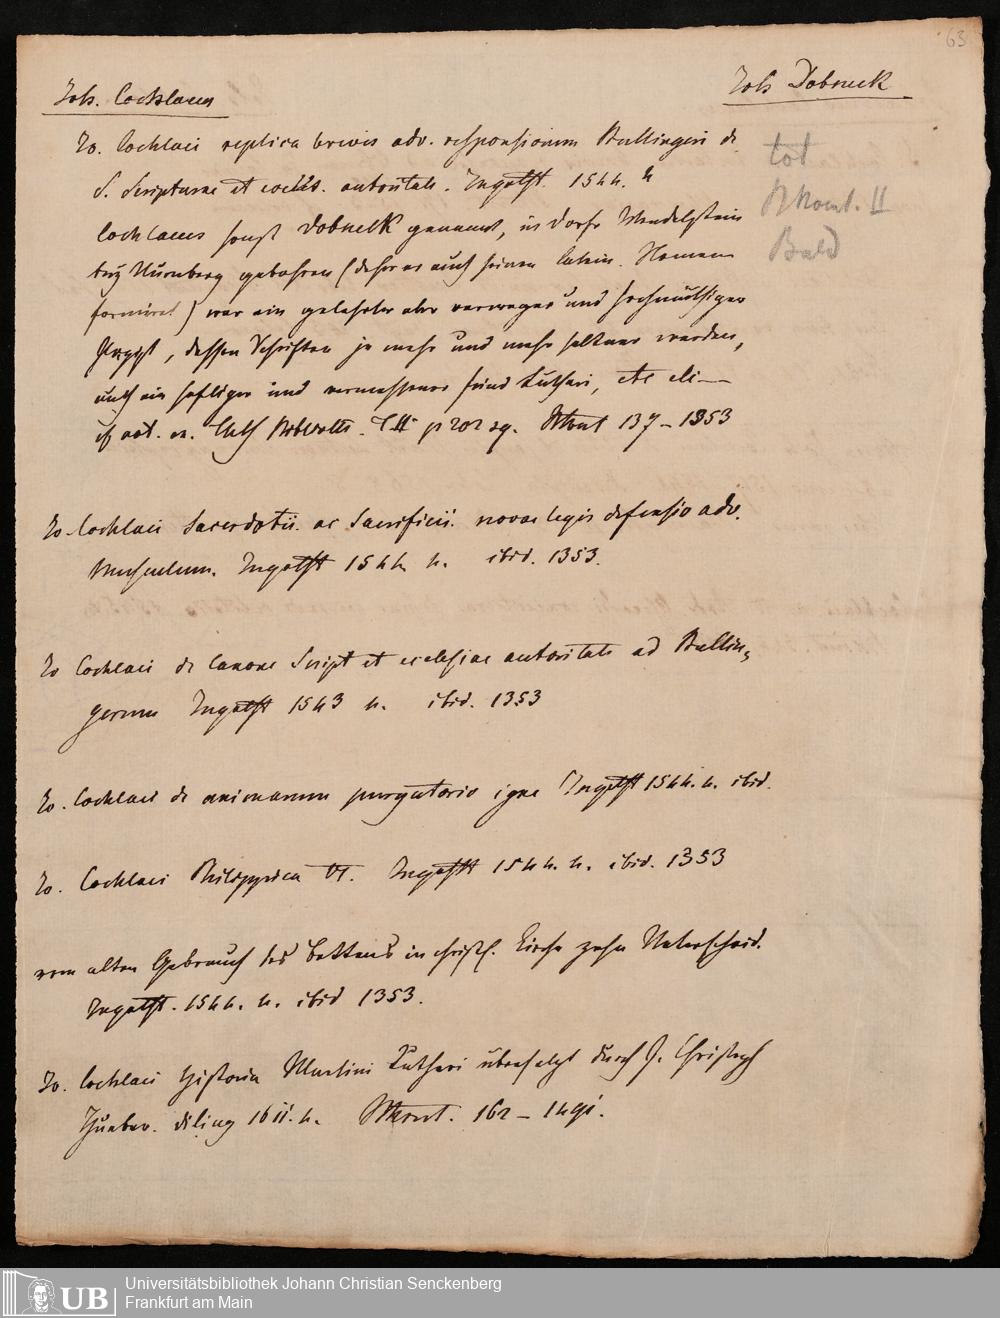 63
Joh. Cochlaeus
Joh Dobneck
Jo. Cochlaei replica brevis adv. responsionem Bullingeri de
S. Scripturae et eccles. autoritate. Ingolst. 1544. 4
Cochlaeus sonst Dobneck genannt, in Dorfe Wendelstein
bey Nürnberg gebohren (daher er auch seinen latein. Namen
formiret) war ein gelehrter aber verwegner und hochmüthiger
Papist, dessen Schriften je mehr und mehr seltner werden,
auch ein heftiger und vermessener feind Lutheri,
p 202 sq. 137 - 1353
tot
II
Bald
Jo. Cochlaei Sacerdotii ac Sacrificii novae legis defensio adv.
Musculum. Ingolst 1544 4. ibid. 1353.
Jo Cochlaei de Canone Script et ecclesiae autoritate ad Bullin,
gerum Ingolst 1543 4. ibid. 1353
Jo. Cochlaei de animarum purgatorio igne Ingolst 1544. 4. ibid.
Jo. Cochlaei Philippica VI. Ingolst 1544. 4. ibid. 1353
vom alten Gebrauch des Bettens in christl. Kirche zehn Unterscheid.
Ingolst. 1544. 4. ibid 1353.
Jo. Cochlaei Historia Martini Lutheri übersetzt durch J. Christoph
Hueber. diling 1611. 4. 162 -
Universitätsbibliothek Johann Christian Senckenberg
Frankfurt am Main
UB